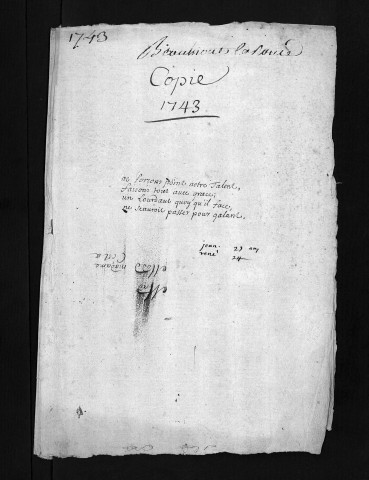 1743
Beaumont la Ronce
Copie
1743
ne forçons point notre Talent,
faisons tout avec grace,
un Lourdaut quoy qu'il face,
ne scauroit passer pour galant.
jean 23 ans
rené 24